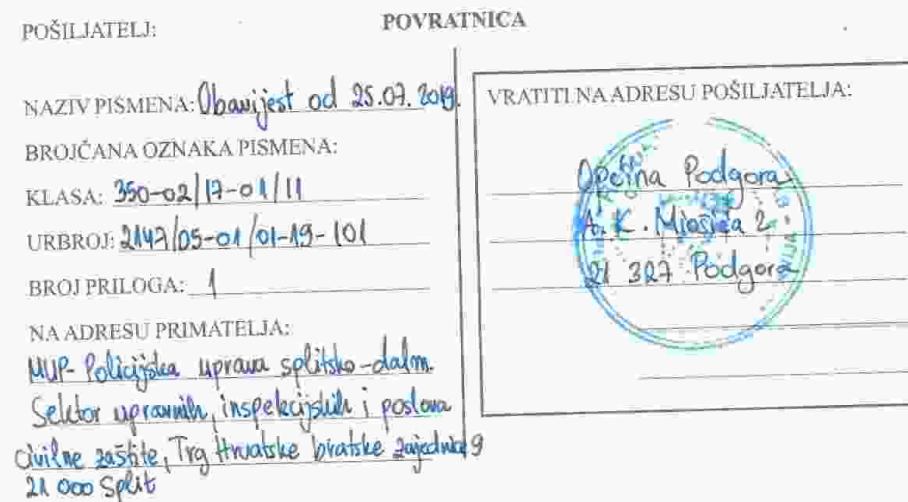 POVRATNICA
POŠILJATELJ:
NAZIV PISMENA: Obavijest od 25.07.2019.
BROJČANA OZNAKA PISMENA:
KLASA: 350-02/17-01/11
URBROJ: 2147/05-01/01-19-101
BROJ PRILOGA: 1
NA ADRESU PRIMATELJA:
MUP- Policijska uprava splitsko-dalm.
Sektor upravnih, inspekcijskih i poslova
civilne zaštite, Trg Hrvatske bratske zajednice 9
21 000 Split
VRATITI NA ADRESU POŠILJATELJA:
Općina Podgora
A. K. Miošića 2
21 327 Podgora